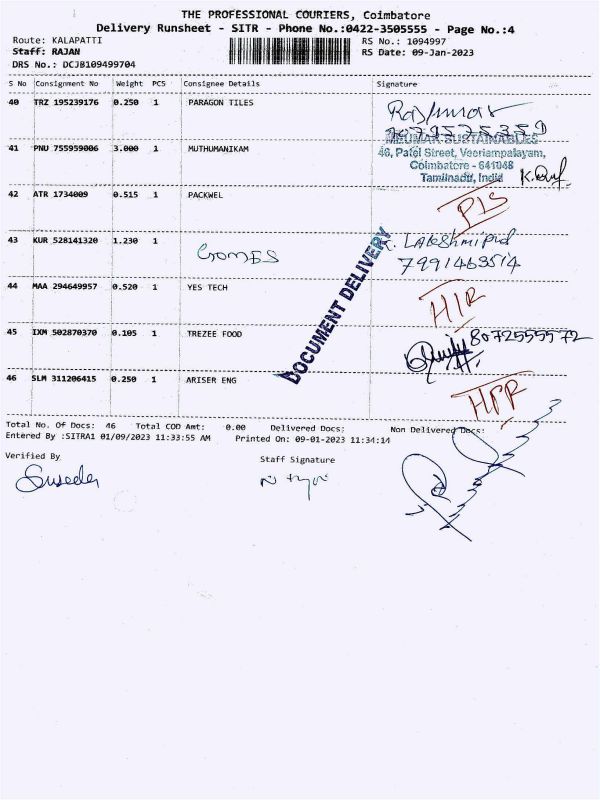 THE PROFESSIONAL COURIERS, Coimbatore
Delivery Runsheet - SITR - Phone No.:0422-3505555 - Page No.:4
Route: KALAPATTI
RS No.: 1094997
Staff: RAJAN
RS Date: 09-Jan-2023
DRS No.: DCJB109499704
S No Consignment No Weight PCS Consignee Details Signature
40 TRZ 195239176 0.250 1 PARAGON TILES
Rajkumar
41 PNU 755959006 3.000 1 MUTHUMANIKAM
SUSTAINABLES
46, Patel Street, Veeriampalayam,
Coimbatore - 641048
Tamilnadu, India
42 ATR 1734009 0.515 1 PACKWEL
43 KUR 528141320 1.230 1
7991463514
44 MAA 294649957 0.520 1 YES TECH
DOCUMENT DELIVERY
45 IXM 502870370 0.105 1 TREZEE FOOD
8072555572
46 SLM 311206415 0.250 1 ARISER ENG
Total No. Of Docs: 46 Total COD Amt: 0.00 Delivered Docs: Non Delivered Docs:
Entered By :SITRA1 01/09/2023 11:33:55 AM Printed On: 09-01-2023 11:34:14
Verified By
Staff Signature